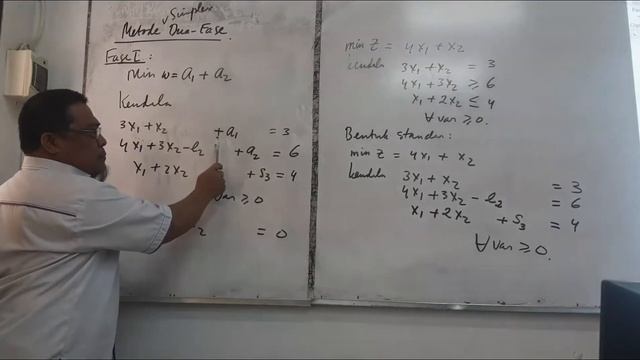 Metode Simplex Dua-Fase.
Fase I:
Min w = a₁ + a₂
Kendala
3x₁ + x₂ + a₁ = 3
4x₁ + 3x₂ - e₂ + a₂ = 6
x₁ + 2x₂ + s₃ = 4
var ≥ 0
2 = 0
min z = 4x₁ + x₂
kendala 3x₁ + x₂ = 3
4x₁ + 3x₂ ≥ 6
x₁ + 2x₂ ≤ 4
∀ var ≥ 0.
Bentuk standar:
min z = 4x₁ + x₂
kendala 3x₁ + x₂ = 3
4x₁ + 3x₂ - e₂ = 6
x₁ + 2x₂ + s₃ = 4
∀ var ≥ 0.